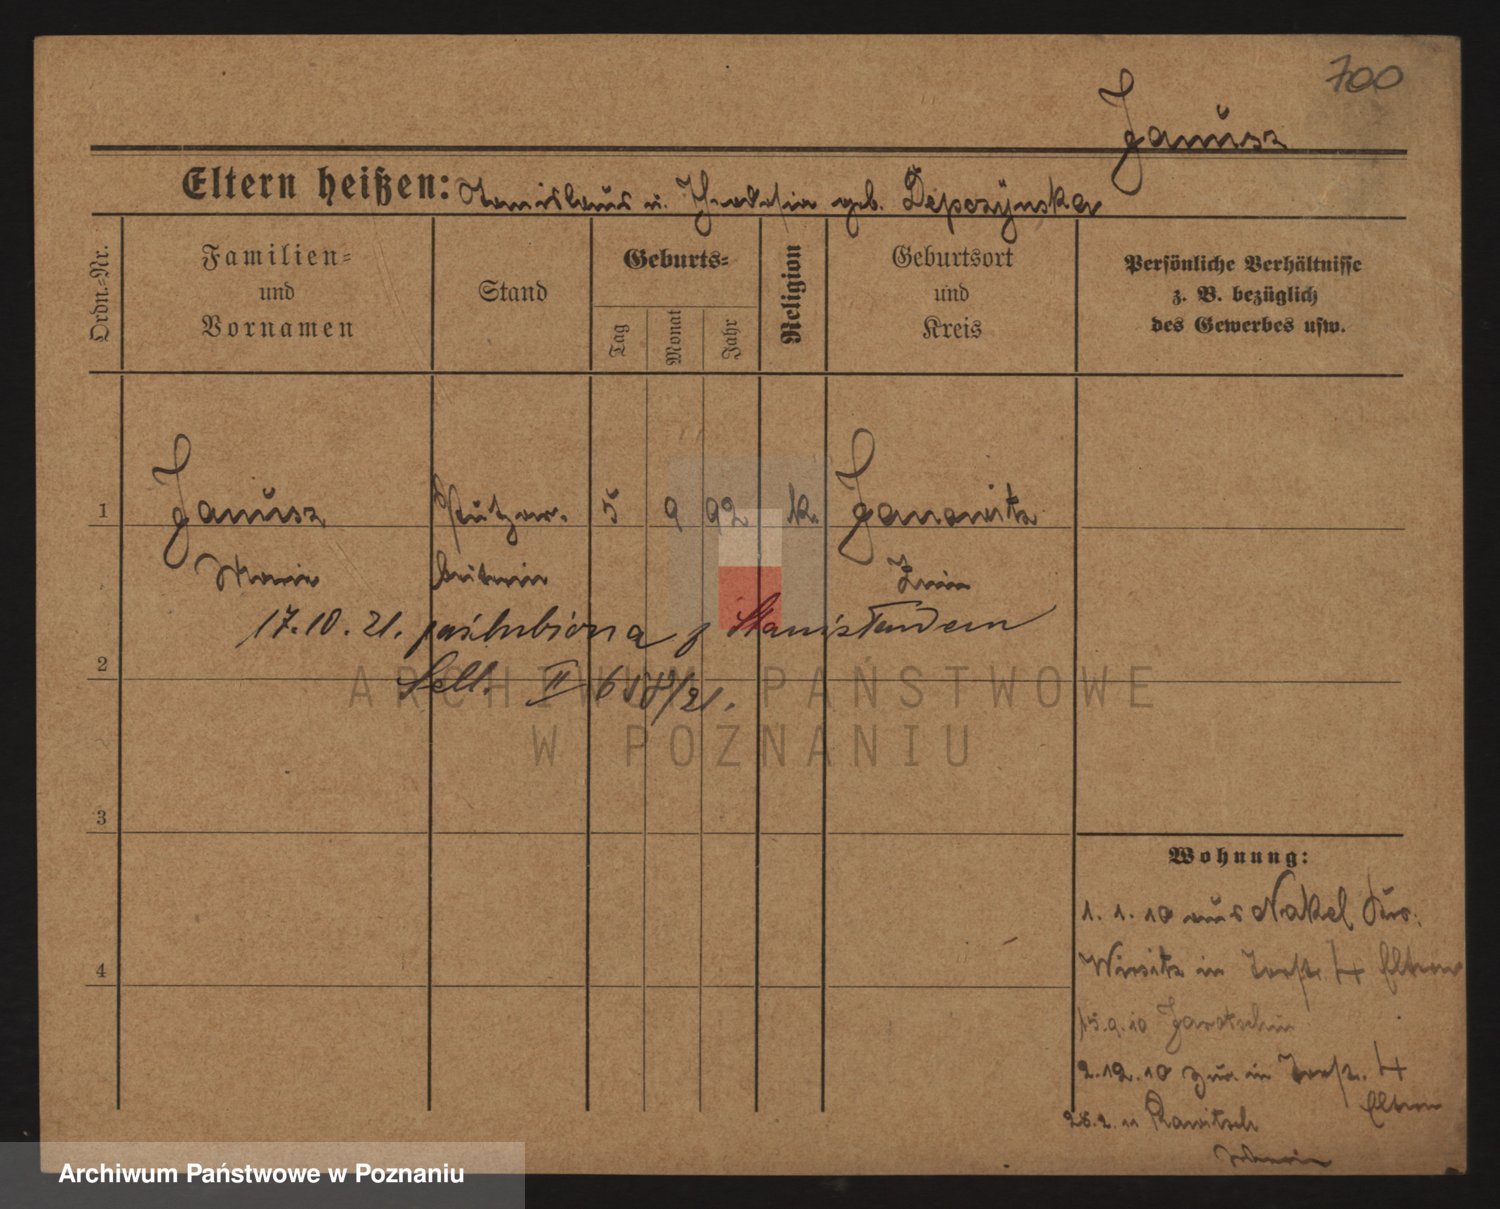 700
Janusz
Eltern heißen: Stanislaus u. geb. Depczynska
Ordn.-Nr.
Familien-
und
Vornamen
Stand
Geburts-
Tag
Monat
Jahr
Religion
Geburtsort
und
Kreis
Persönliche Verhältnisse
z. B. bezüglich
des Gewerbes usw.
1
Janusz 5 9 92 k. Janowitz
Marie Znin
17.10.21. poślubiona z Stanisławem
2
Sell. II
ARCHIWUM PAŃSTWOWE
W POZNANIU
3
Wohnung:
1. 1. 10 aus Nakel Krs.
4
Wirsitz in 4 Eltern
15.9.10 Jarotschin
2.12.10 zur. in 4
Eltern
Rawitsch
Archiwum Państwowe w Poznaniu